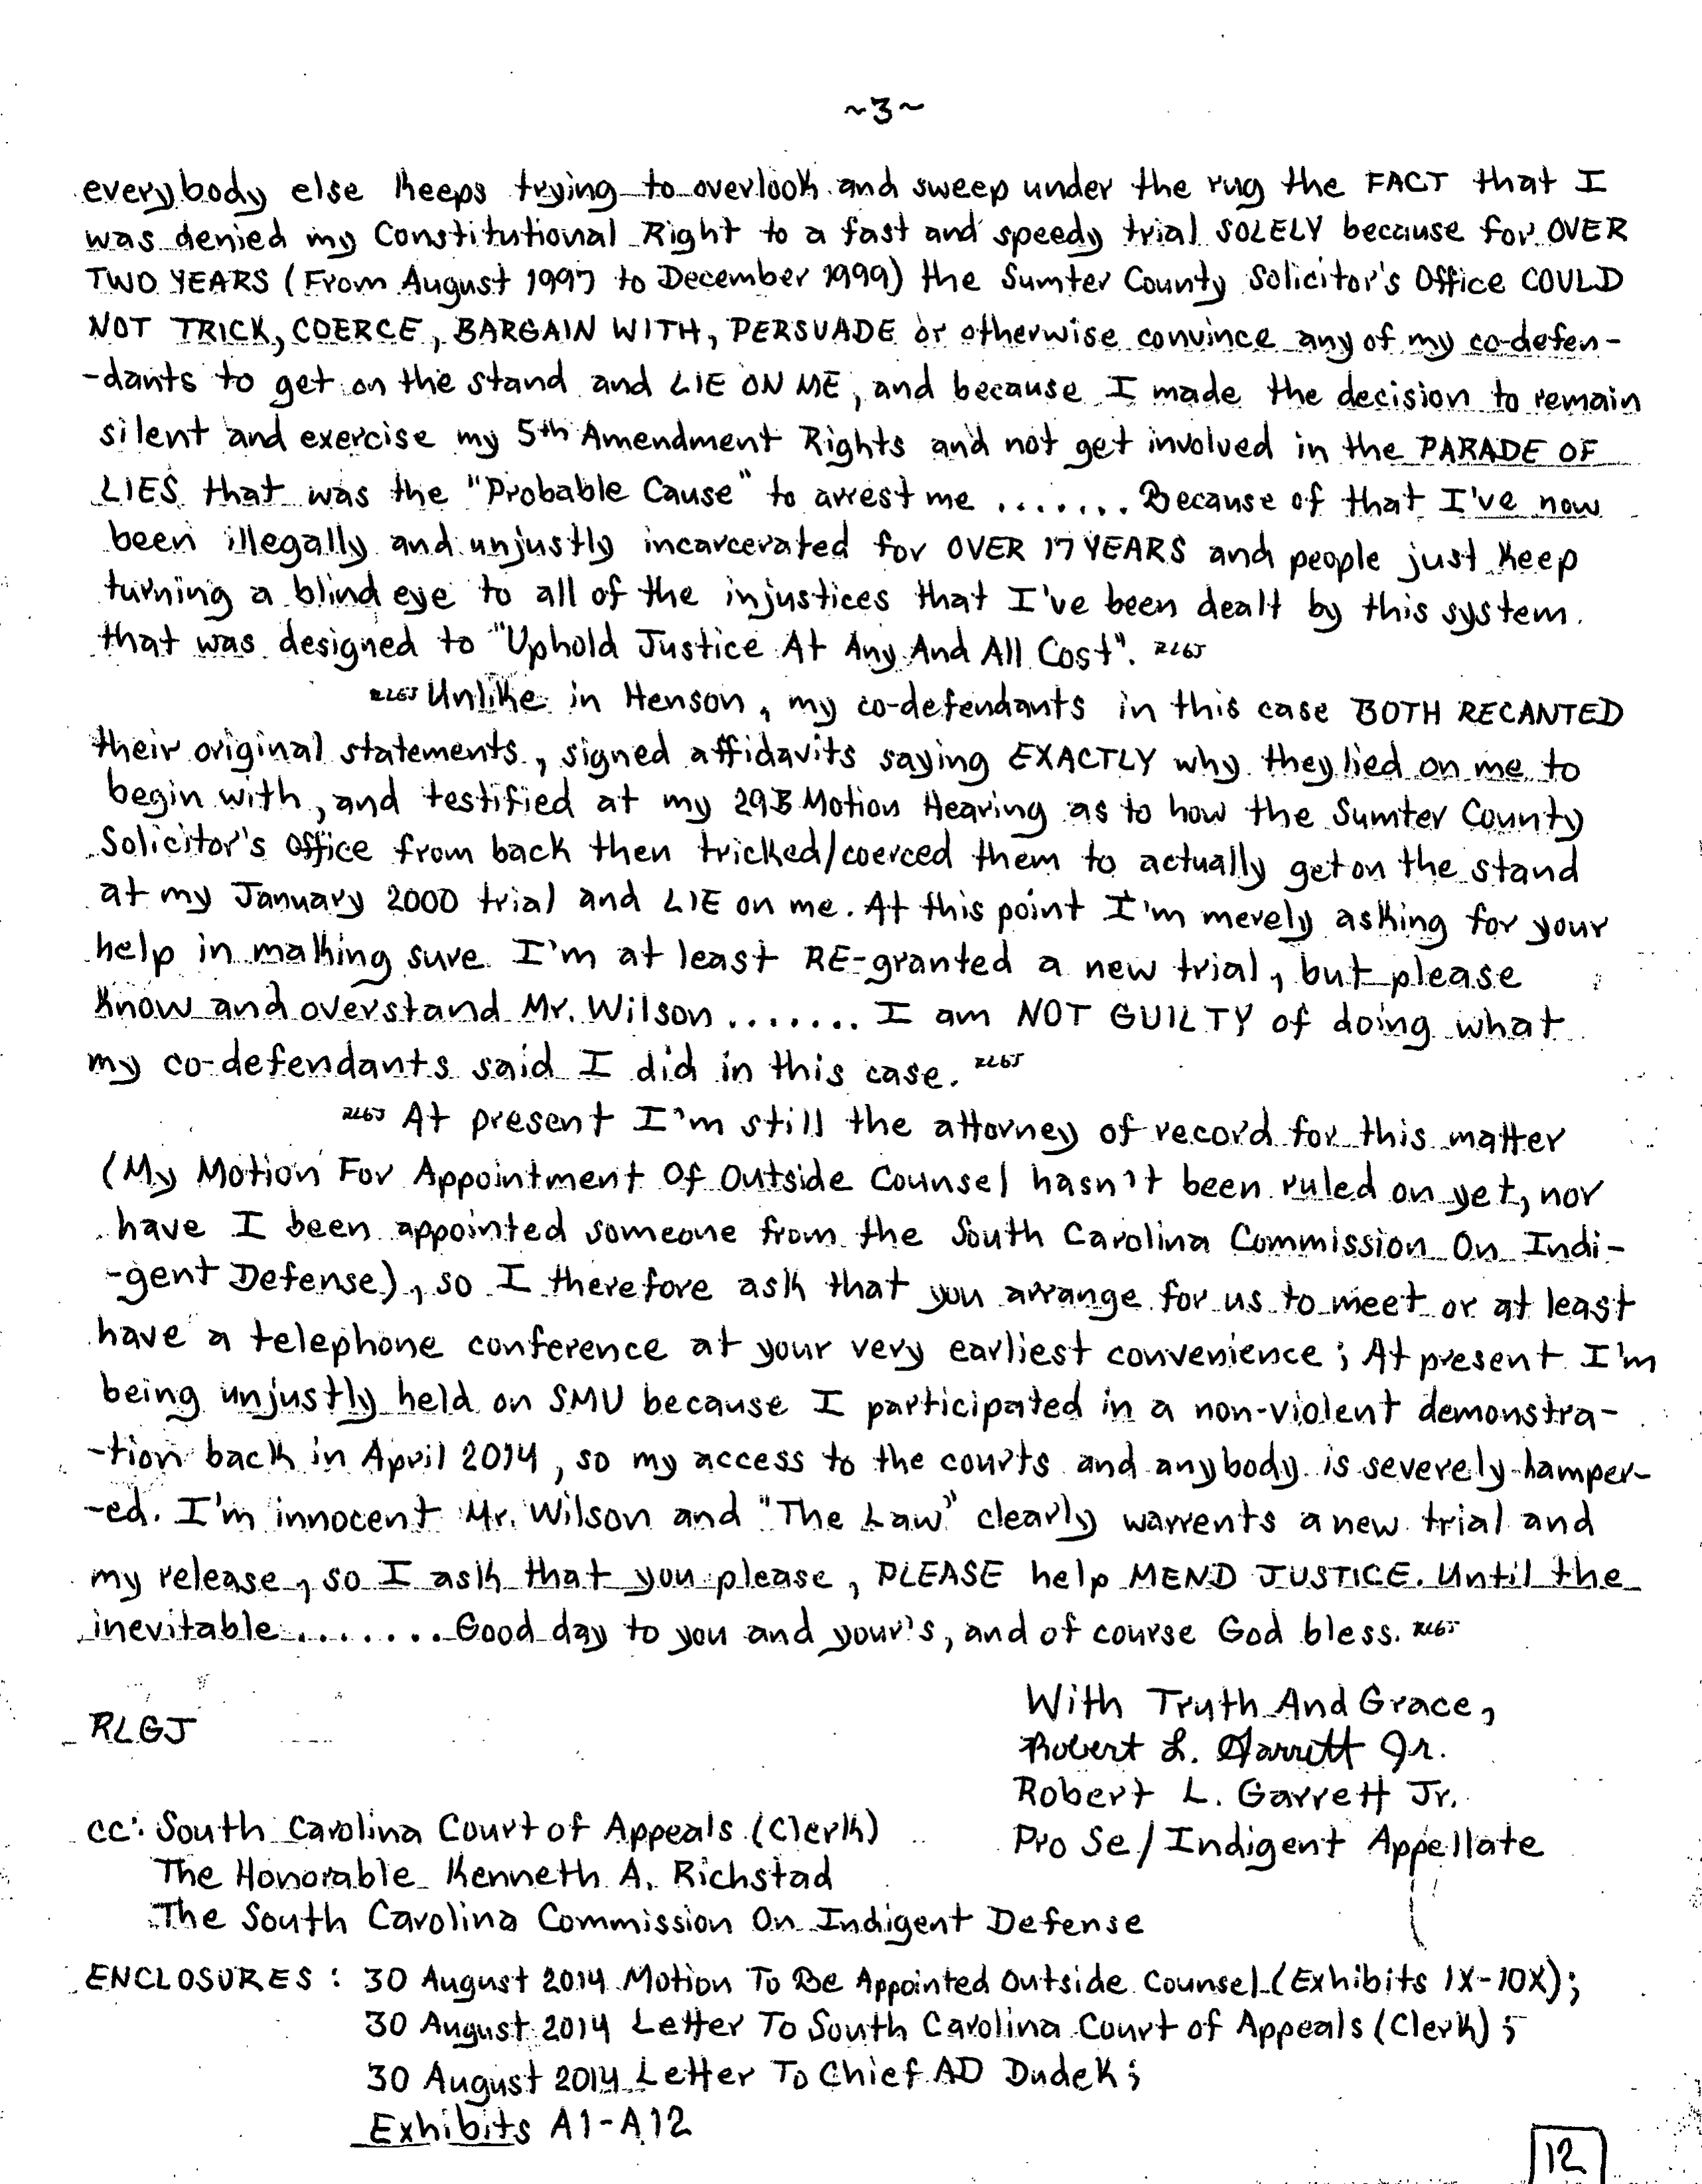 ~3~
everybody else keeps trying to overlook and sweep under the rug the FACT that I
was denied my Constitutional Right to a fast and speedy trial SOLELY because for OVER
TWO YEARS (From August 1997 to December 1999) the Sumter County Solicitor's Office COULD
NOT TRICK, COERCE, BARGAIN WITH, PERSUADE or otherwise convince any of my co-defen-
-dants to get on the stand and LIE ON ME, and because I made the decision to remain
silent and exercise my 5th Amendment Rights and not get involved in the PARADE OF
LIES that was the "Probable Cause" to arrest me ....... Because of that I've now
been illegally and unjustly incarcerated for OVER 17 YEARS and people just keep
turning a blind eye to all of the injustices that I've been dealt by this system
that was designed to "Uphold Justice At Any And All Cost". RLGJ
RLGJ Unlike in Henson, my co-defendants in this case BOTH RECANTED
their original statements, signed affidavits saying EXACTLY why they lied on me to
begin with, and testified at my 29B Motion Hearing as to how the Sumter County
Solicitor's Office from back then tricked/coerced them to actually get on the stand
at my January 2000 trial and LIE on me. At this point I'm merely asking for your
help in making sure I'm at least RE-granted a new trial, but please
know and overstand Mr. Wilson ....... I am NOT GUILTY of doing what
my co-defendants said I did in this case. RLGJ
RLGJ At present I'm still the attorney of record for this matter
(My Motion For Appointment Of Outside Counsel hasn't been ruled on yet, nor
have I been appointed someone from the South Carolina Commission On Indi-
-gent Defense), so I therefore ask that you arrange for us to meet or at least
have a telephone conference at your very earliest convenience; At present I'm
being unjustly held on SMU because I participated in a non-violent demonstra-
-tion back in April 2014, so my access to the courts and anybody is severely hamper-
-ed. I'm innocent Mr. Wilson and "The Law" clearly warrents a new trial and
my release, so I ask that you please, PLEASE help MEND JUSTICE. Until the
inevitable ....... Good day to you and your's, and of course God bless. RLGJ
With Truth And Grace,
RLGJ
Robert L. Garrett Jr.
Robert L. Garrett Jr.
Pro Se/Indigent Appellate
cc: South Carolina Court of Appeals (Clerk)
The Honorable Kenneth A. Richstad
The South Carolina Commission On Indigent Defense
ENCLOSURES: 30 August 2014 Motion To Be Appointed Outside Counsel (Exhibits 1X-10X);
30 August 2014 Letter To South Carolina Court of Appeals (Clerk);
30 August 2014 Letter To Chief AD Dudek;
Exhibits A1-A12
12